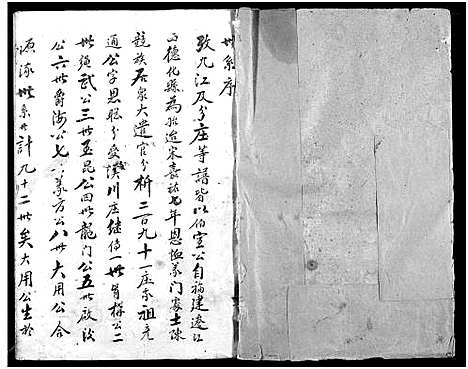 世系序
攷九江及分庄等譜皆以伯宣公自福建遷江
西德化縣為始迨宋嘉祐七年恩恤義門家士陳
競族居家大遣官分析二百九十一庄示祖克
通公字思聪分受溪川庄继傳一世肾祿公二
世绳武公三世五昆公四世龍门公五世啟後
公六世爵海公七世義方公八世大用公合
源流世系廾計九十二世矣大用公生於